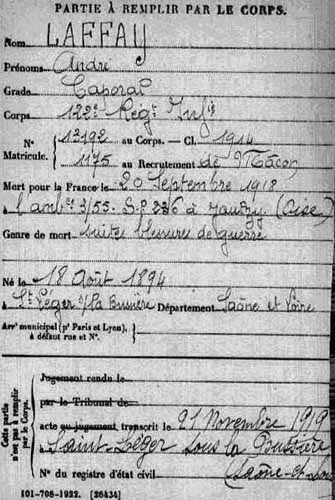 PARTIE À REMPLIR PAR LE CORPS.
Nom LAFFAY
Prénoms André
Grade Caporal
Corps 122e Régt Infie
N° 13192 au Corps. — Cl. 1914
Matricule. 1175 au Recrutement de Mâcon
Mort pour la France le 20 Septembre 1918
à l'ambce 3/55. S.P 226 à Jauzy (Oise)
Genre de mort suites blessures de guerre
Né le 18 Août 1894
à St Léger s/la Bussière Département Saône et Loire
Arrt municipal (pr Paris et Lyon),
à défaut rue et N°.
Cette partie
n'est pas à remplir
par le Corps.
Jugement rendu le
par le Tribunal de
acte ou jugement transcrit le 21 Novembre 1919
à Saint-Léger sous la Bussière
(Saône-et-
N° du registre d'état civil
101-708-1922. [26434]